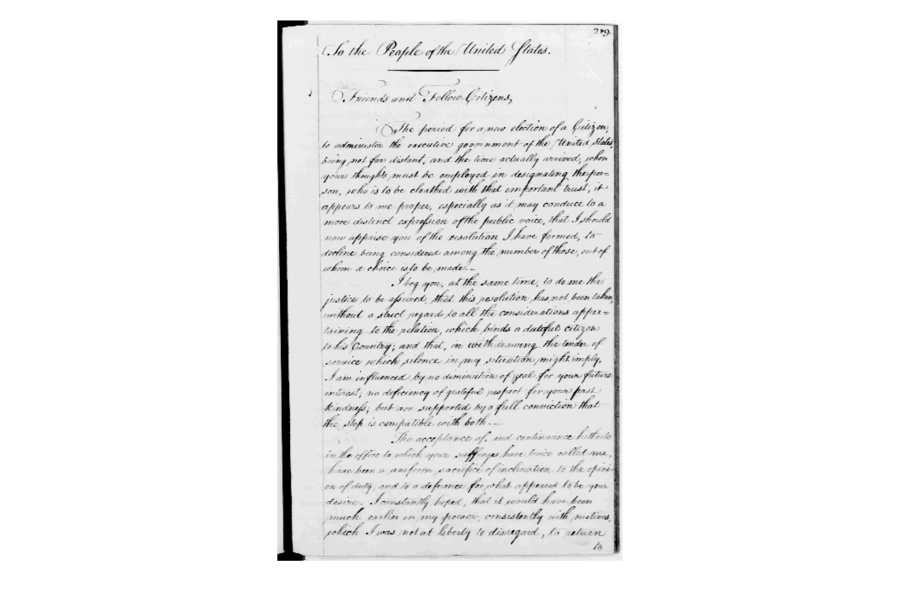 219.
To the People of the United States.
Friends and Fellow Citizens,
The period for a new election of a Citizen,
to administer the executive government of the United States,
being not far distant, and the time actually arrived, when
your thoughts must be employed in designating the per=
son, who is to be cloathed with that important trust, it
appears to me proper, especially as it may conduce to a
more distinct expression of the public voice, that I should
now apprise you of the resolution I have formed, to
decline being considered among the number of those, out of
whom a choice is to be made.—
I beg you, at the same time, to do me the
justice to be assured, that this resolution has not been taken,
without a strict regard to all the considerations apper=
taining to the relation, which binds a dutiful citizen
to his Country; and that, in withdrawing the tender of
service which silence in my situation might imply,
I am influenced by no diminution of zeal for your future
interest; no deficiency of grateful respect for your past
kindness; but am supported by a full conviction that
the step is compatible with both.—
The acceptance of, and continuance hitherto
in the office to which your suffrages have twice called me,
have been a uniform sacrifice of inclination to the opini
on of duty, and to a deference for what appeared to be your
desire. I constantly hoped, that it would have been
much earlier in my power, consistently with motives,
which I was not at liberty to disregard, to return
to